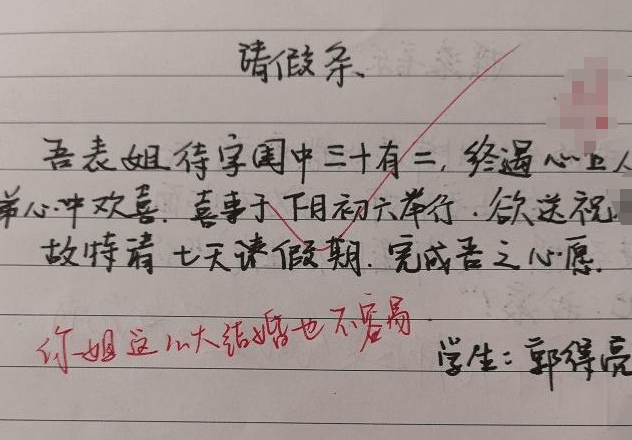 请假条
吾表姐待字闺中三十有二,终遇心上人
弟心中欢喜.喜事于下月初六举行.欲送祝
故特请七天课假期.完成吾之心愿.
你姐这么大结婚也不容易.
学生:郭得亮